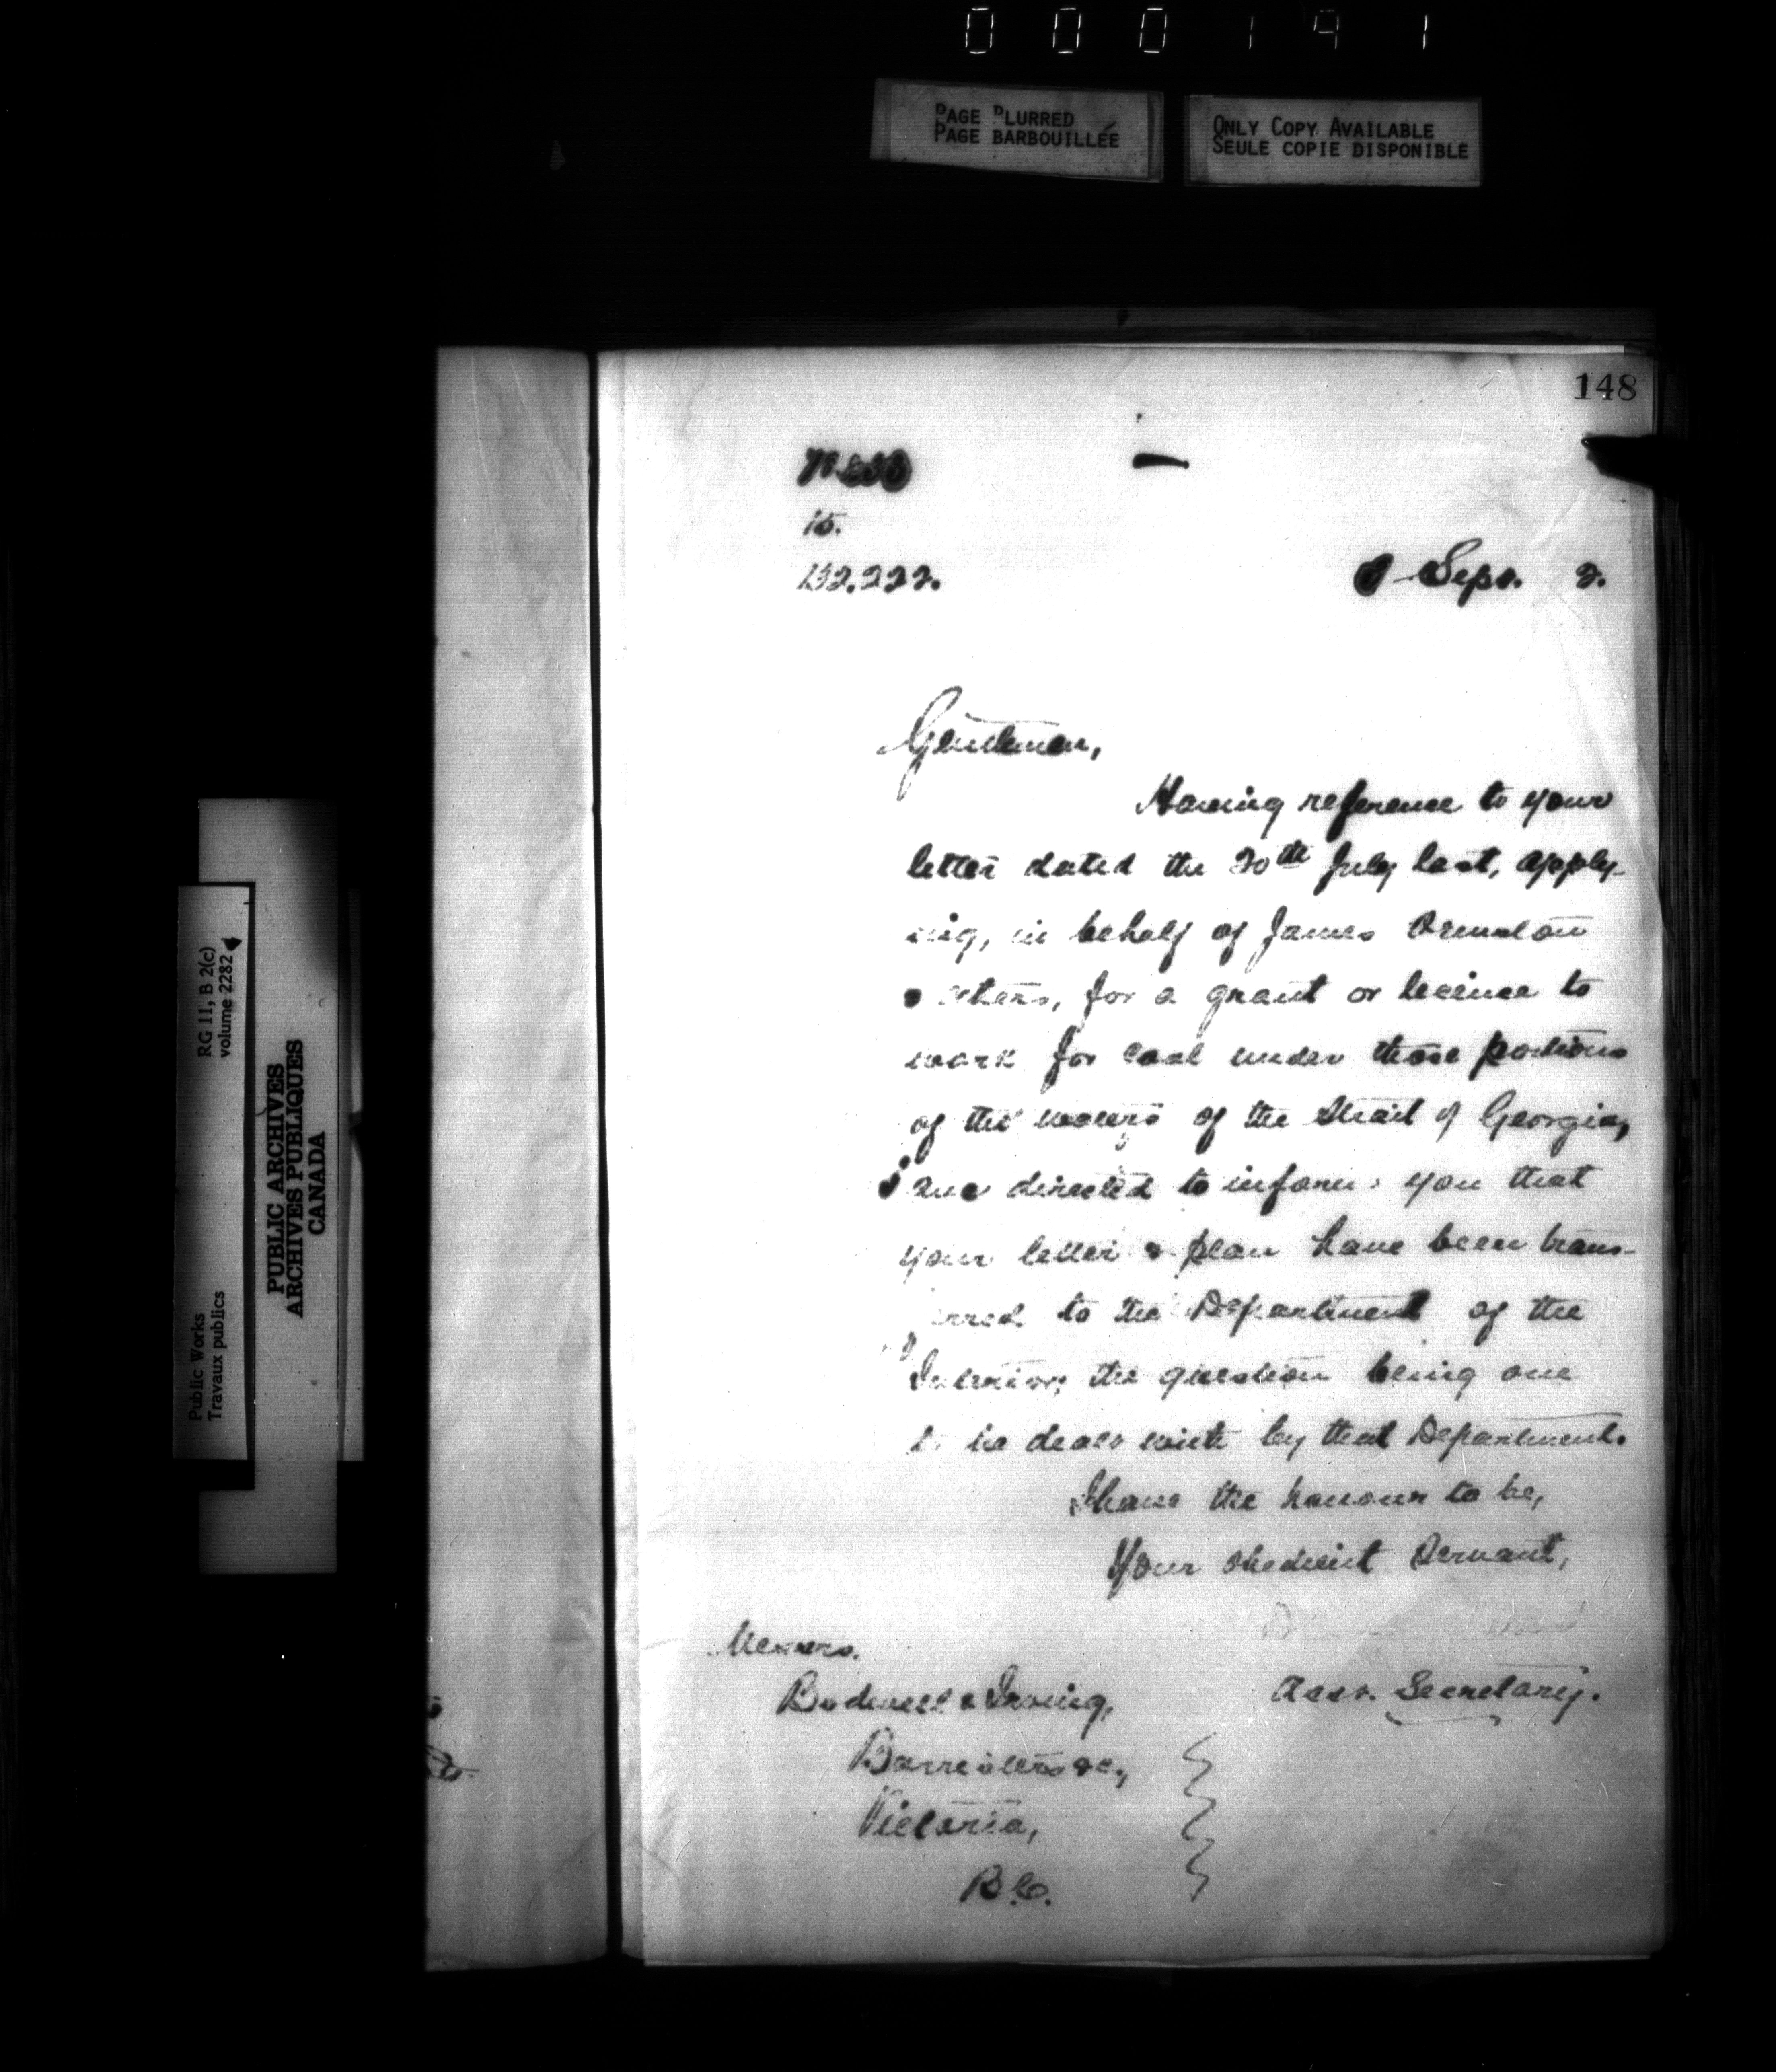 000191
PAGE BLURRED
PAGE BARBOUILLÉE
ONLY COPY AVAILABLE
SEULE COPIE DISPONIBLE
148
15.
132.222.
Sept. 2.
Gentlemen,
Having reference to your
letter dated the 30th July last, apply-
ing, in behalf of James
& others, for a grant or license to
work for coal under those portions
of the waters of the Strait of Georgia,
I am directed to inform you that
your letter & plan have been trans-
erred to the Department of the
Interior, the question being one
to be dealt with by that Department.
I have the honour to be,
Your obedient Servant,
Asst. Secretary.
Messrs.
Bodwell & Irving,
Barristers &c.,
Victoria,
B.C.
RG 11, B 2(c)
volume 2282
Public Works
Travaux publics
PUBLIC ARCHIVES
ARCHIVES PUBLIQUES
CANADA